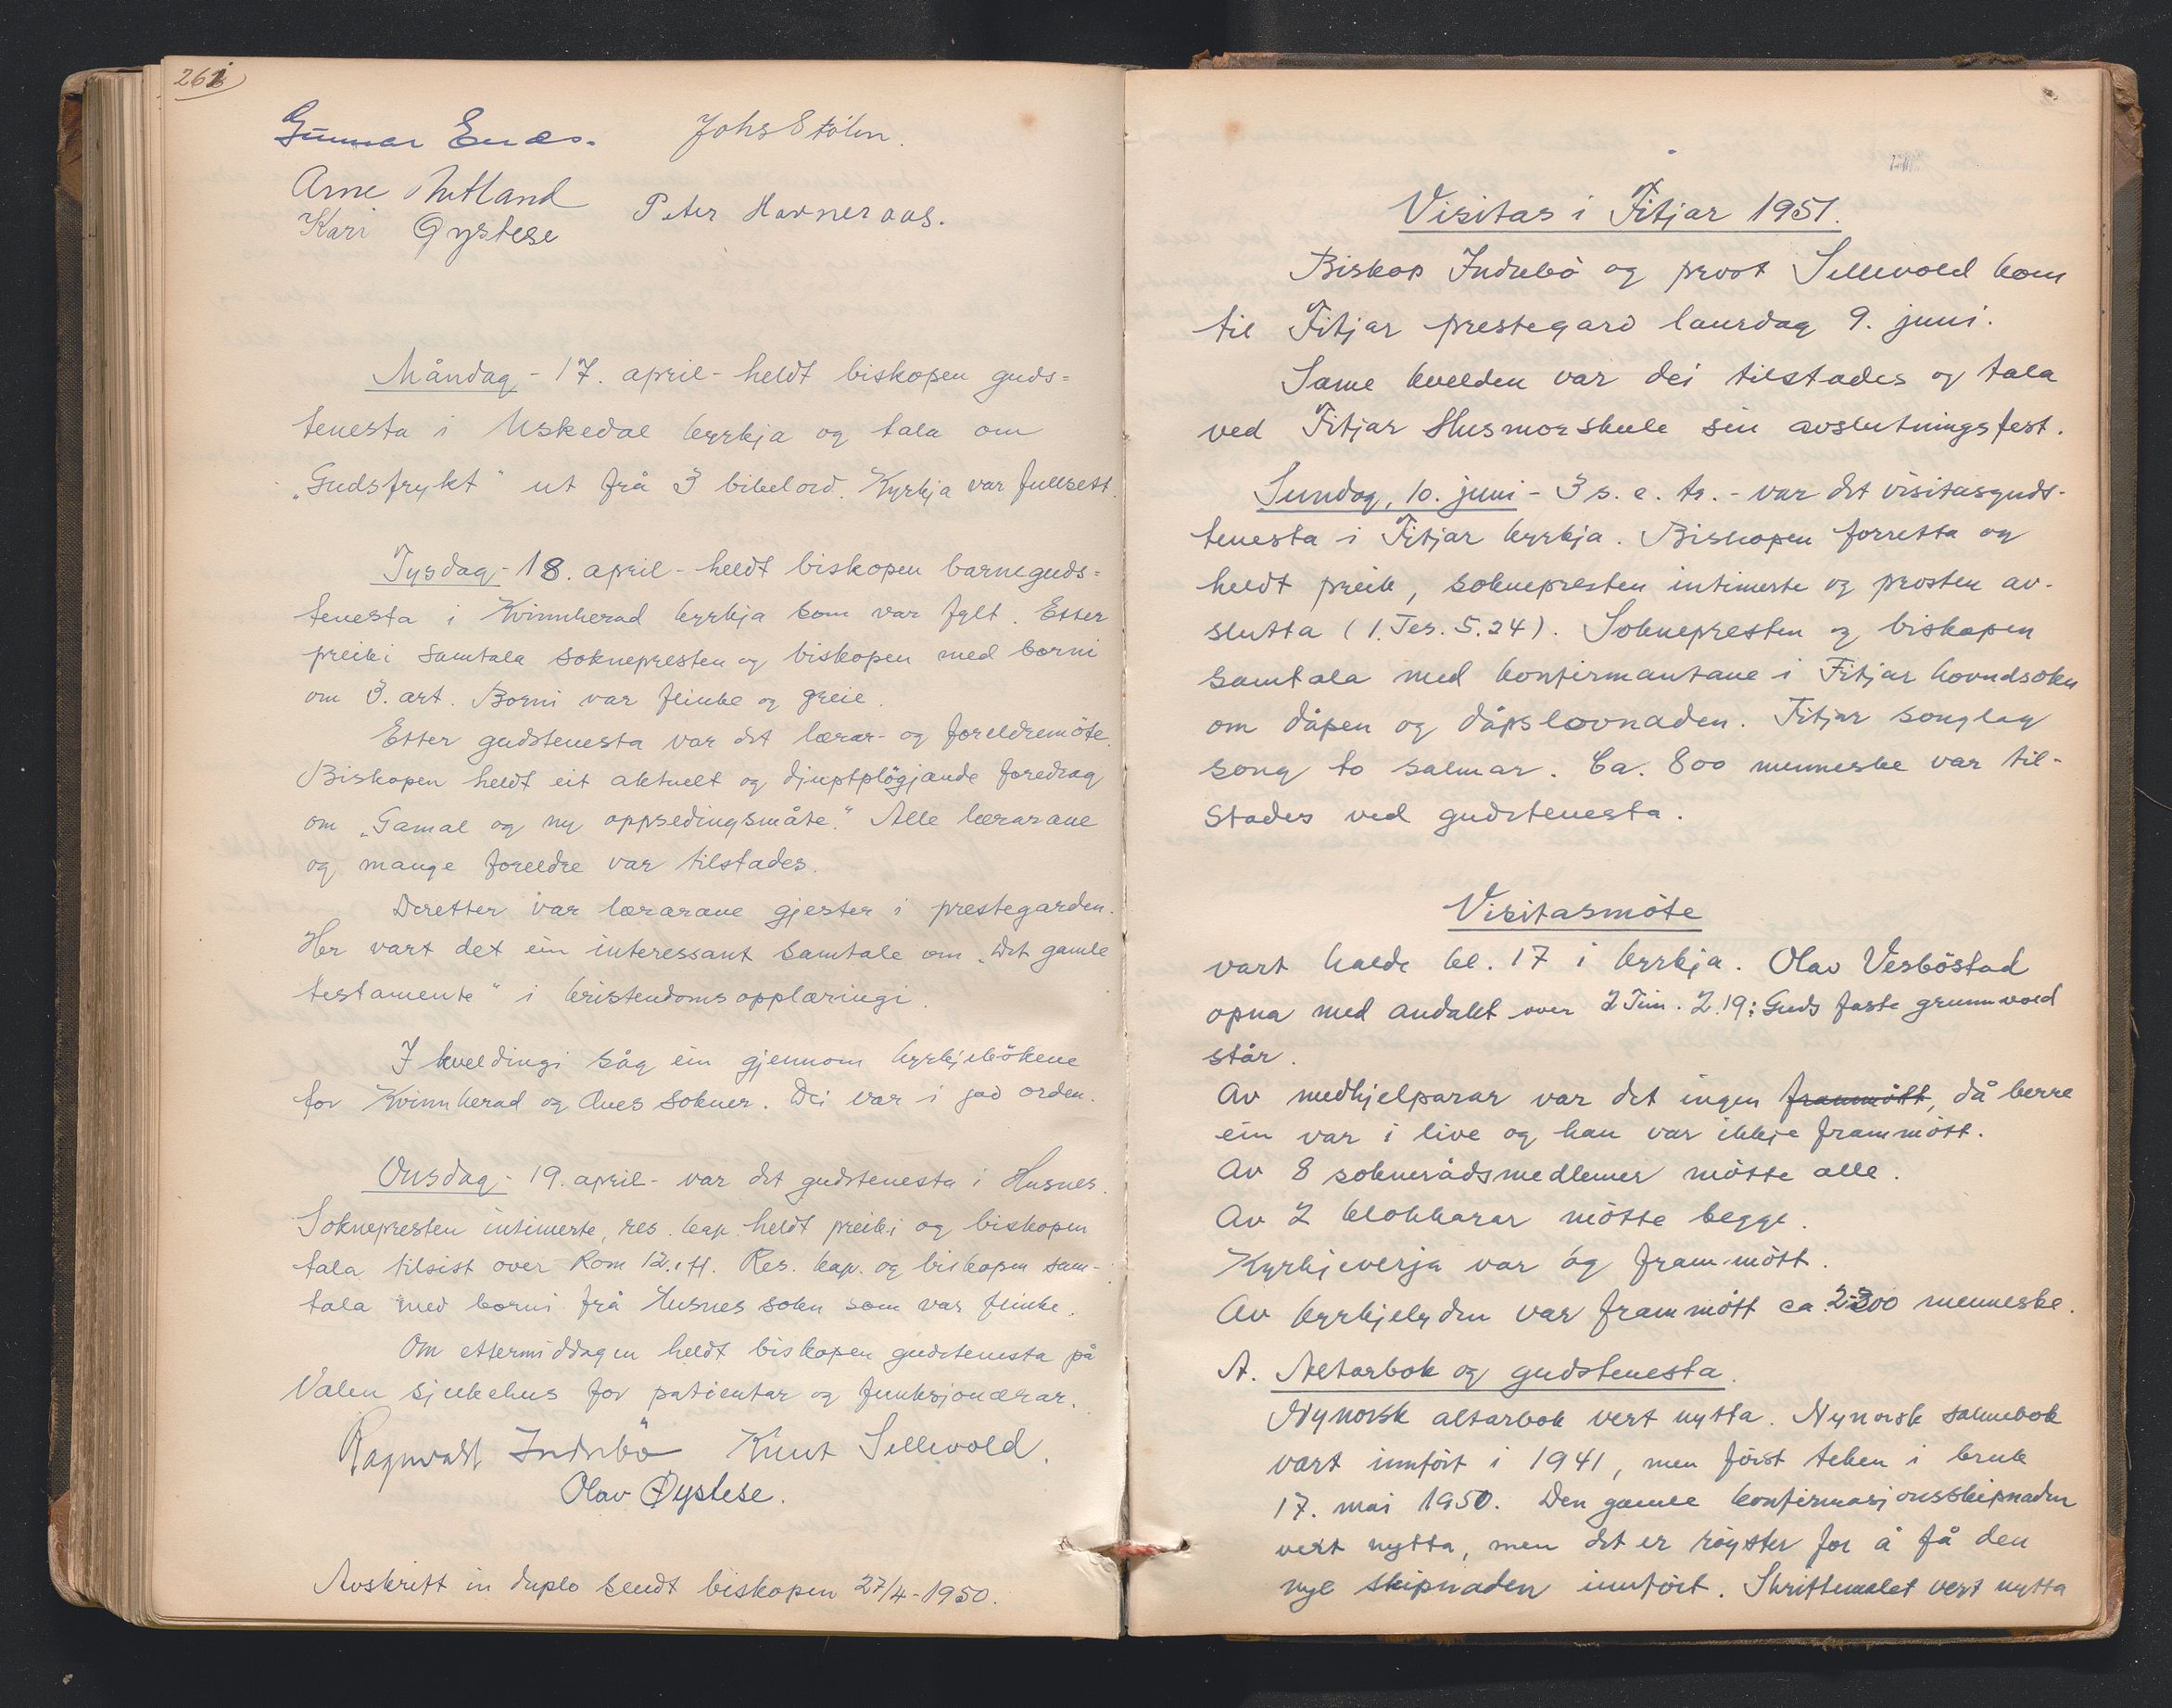 262
Gunnar Enes. Johs Stölen.
Arne
Kari Øystese Peter Havneraas.
Måndag - 17. april - heldt biskopen guds=
tenesta i Uskedal kyrkja og tala om
„Gudsfrykt" ut frå 3 bibelord. Kyrkja var fullsett.
Tysdag - 18. april - heldt biskopen barneguds=
tenesta i Kvinnherad kyrkja som var fylt. Etter
preiki samtala soknepresten og biskopen med borni
om 3. art. Borni var flinke og greie.
Etter gudstenesta var det lærar- og foreldremöte.
Biskopen heldt eit aktuelt og djuptplögjande foredrag
om „Gamal og ny oppsedingsmåte." Alle lærarane
og mange foreldre var tilstades.
Deretter var lærarane gjester i prestegarden.
Her vart det ein interessant samtale om „Det gamle
testamente" i kristendomsopplæringi.
I kveldingi såg ein gjennom kyrkjebökene
for Kvinnherad og Ænes sokner. Dei var i god orden.
Onsdag - 19. april - var det gudstenesta i Husnes.
Soknepresten intimerte, res. kap. heldt preiki og biskopen
tala tilsist over Rom 12.1 ff. Res. kap. og biskopen sam-
tala med borni frå Husnes sokn som var flinke.
Om ettermiddagen heldt biskopen gudstenesta på
Valen sjukehus for patientar og funksjonærar.
Ragnvald Indrebö Knut Sellevold.
Olav Øystese.
Avskrift in duplo sendt biskopen 27/4-1950.
Visitas i Fitjar 1951.
Biskop Indrebö og prost Sellevold kom
til Fitjar prestegard laurdag 9. juni.
Same kvelden var dei tilstades og tala
ved Fitjar Husmorskule sin avslutningsfest.
Sundag, 10. juni - 3 s. e. tr. - var det visitasguds-
tenesta i Fitjar kyrkja. Biskopen forretta og
heldt preik, soknepresten intimerte og prosten av-
slutta (1. Tes. 5.24). Soknepresten og biskopen
samtala med konfirmantane i Fitjar hovudsokn
om dåpen og dåpslovnaden. Fitjar songlag
song to salmar. Ca. 800 menneske var til-
stades ved gudstenesta.
Visitasmöte
vart halde kl. 17 i kyrkja. Olav Vesböstad
opna med andakt over 2 Tim. 2.19: Guds faste grunnvold
står.
Av medhjelparar var det ingen frammött, då berre
ein var i live og han var ikkje frammött.
Av 8 soknerådsmedlemer mötte alle.
Av 2 klokkarar mötte begge.
Kyrkjeverja var óg fram-mött.
Av kyrkjelyden var frammött ca. 200 menneske.
A. Altarbok og gudstenesta.
Nynorsk altarbok vert nytta. Nynorsk salmebok
vart innfört i 1941, men först teken i bruk
17. mai 1950. Den gamle konfirmasjonsskipnaden
vert nytta, men det er röyster for å få den
nye skipnaden innfört. Skriftemålet vert nytta